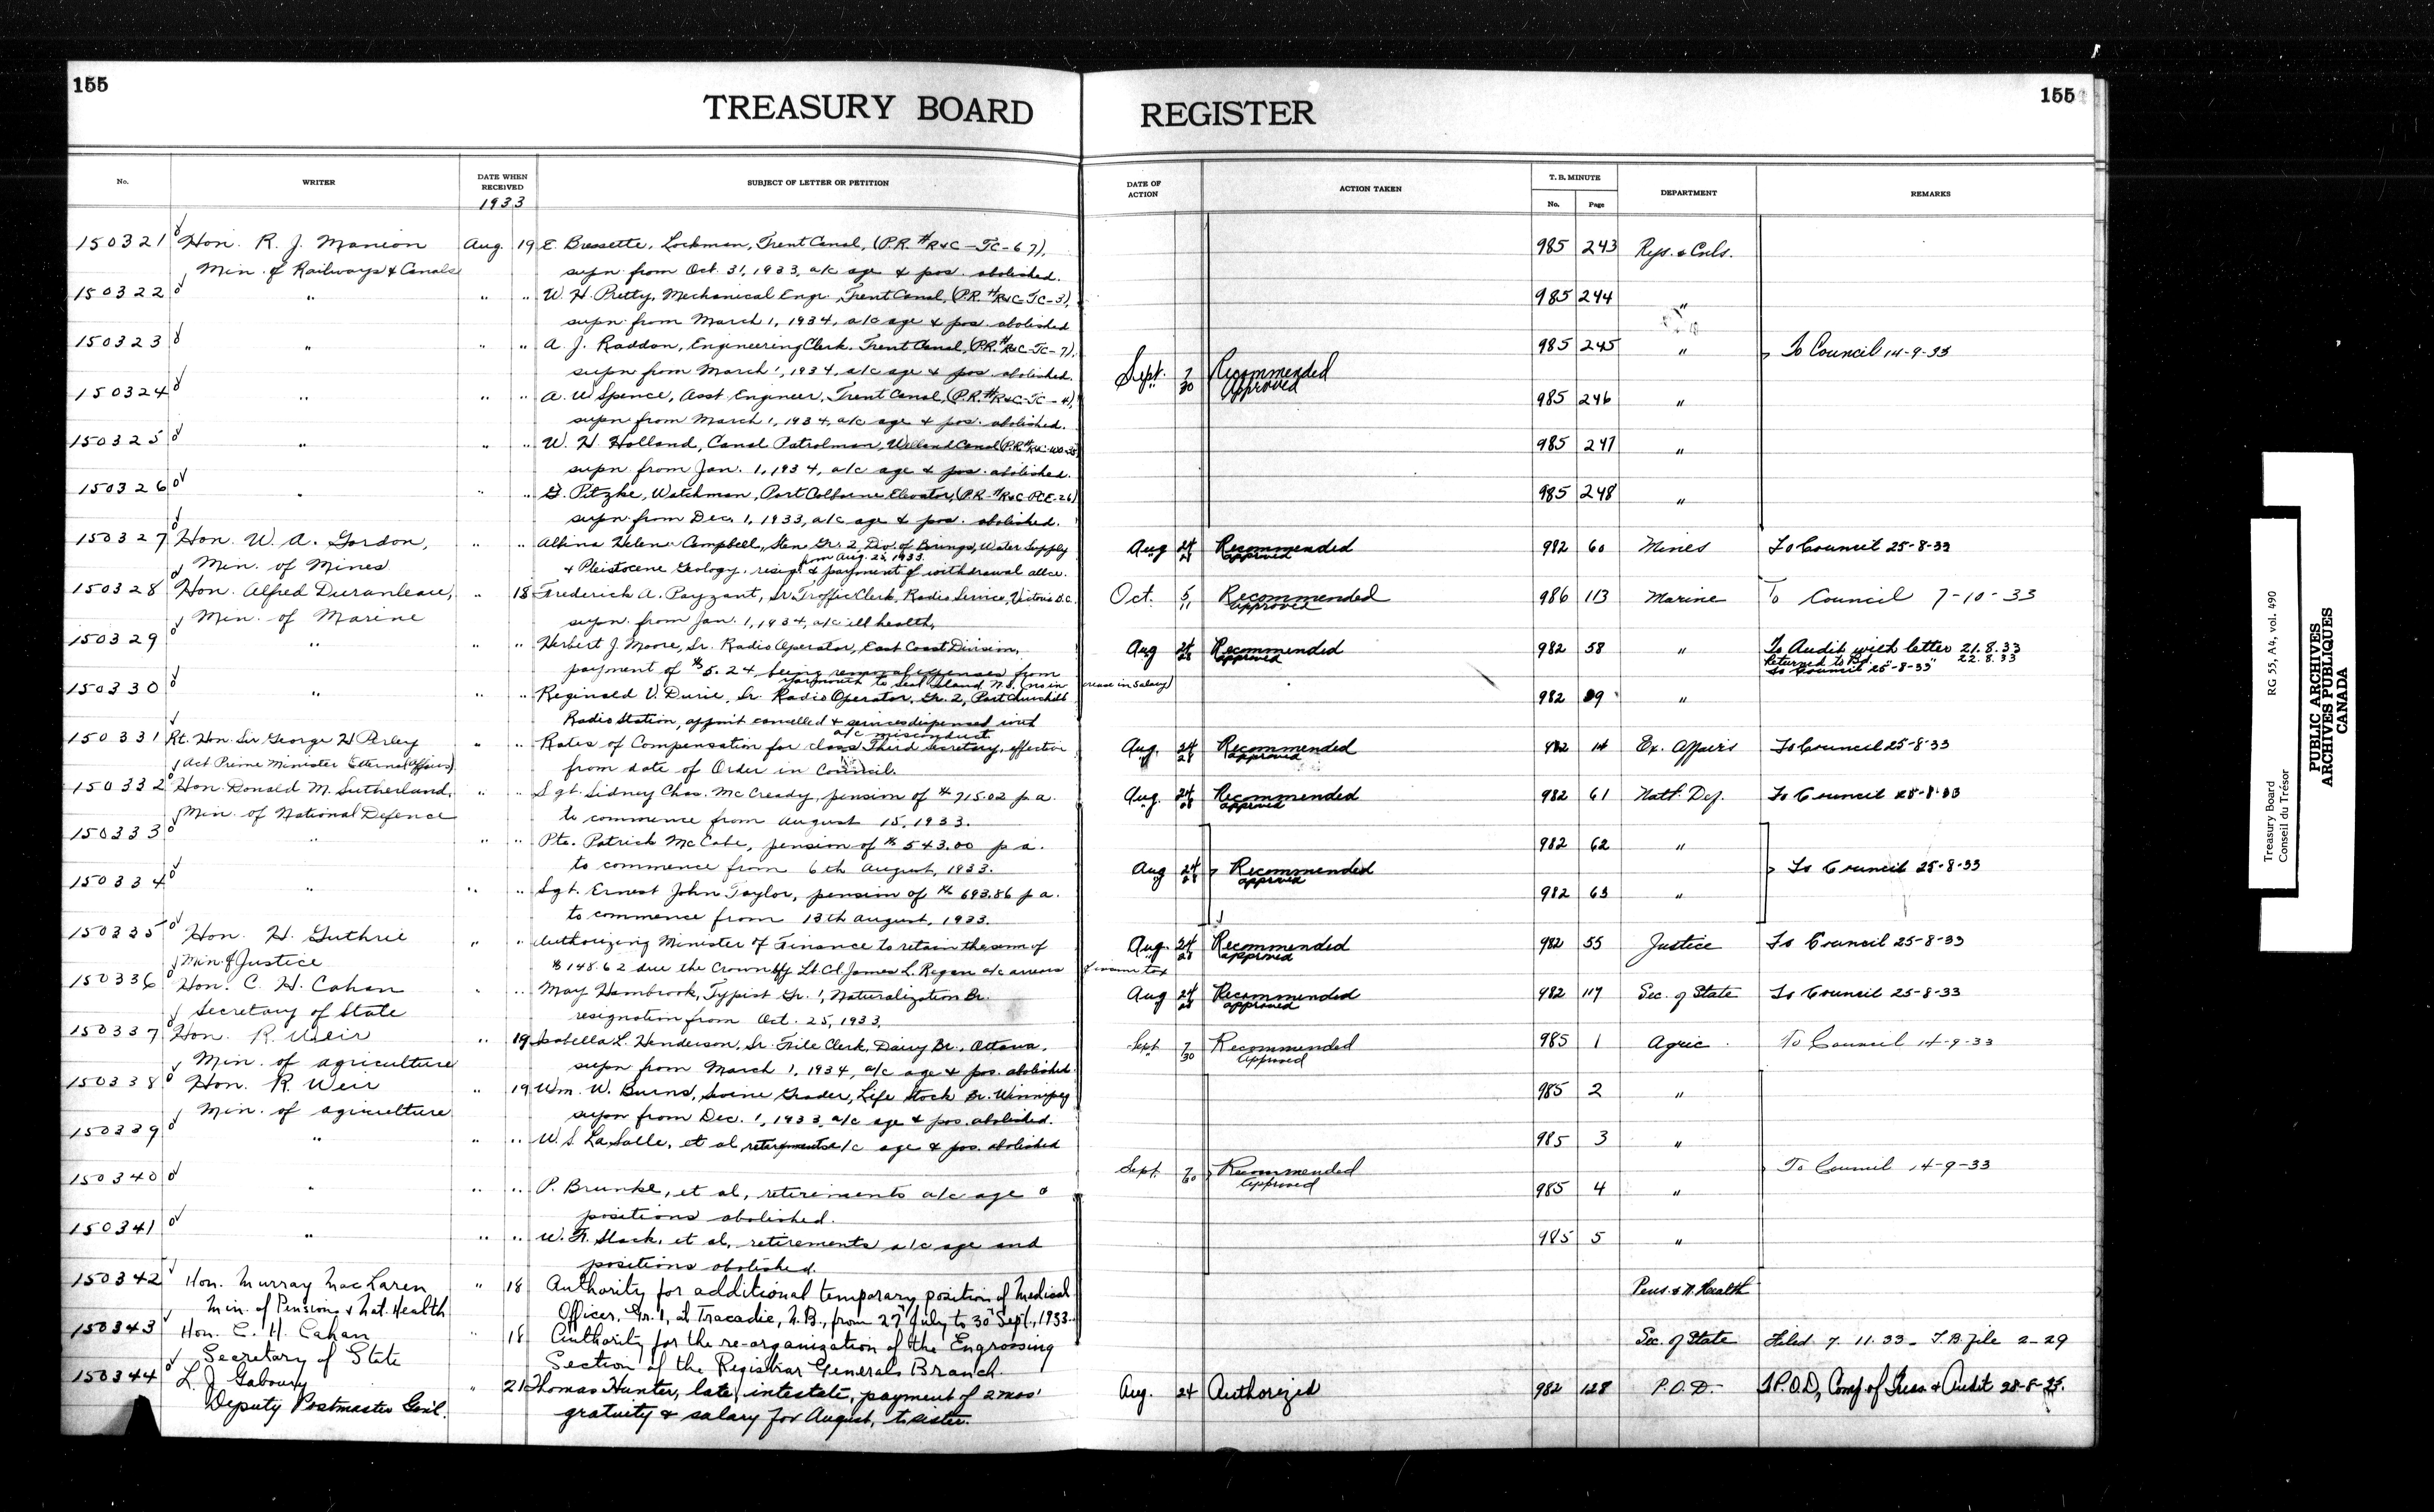 155
155
TREASURY BOARD REGISTER
No.
WRITER
DATE WHEN RECEIVED
1933
SUBJECT OF LETTER OR PETITION
DATE OF ACTION
ACTION TAKEN
T. B. MINUTE
No.
Page
DEPARTMENT
REMARKS
150321 Hon. R. J. Manion Aug. 19 E. Bressette, Lockman, Trent Canal, (P.R. #R&C-TC-67), 985 243 Rys. & Cnls.
Min. of Railways & Canals supn from Oct. 31, 1933, a/c age & pos. abolished.
150322 " " " W. H. Pretty, Mechanical Engr. Trent Canal, (P.R. #R&C-TC-3), 985 244 "
supn from March 1, 1934, a/c age & pos. abolished
150323 " " " A. J. Raddon, Engineering Clerk, Trent Canal, (P.R. #R&C-TC-7), 985 245 " To Council 14-9-33
supn from March 1, 1934, a/c age & pos abolished. Sept. 7 Recommended
" 30 Approved
150324 " " A. W Spence, Asst Engineer, Trent Canal, (P.R. #R&C-TC-4), 985 246 "
supn from March 1, 1934, a/c age & pos. abolished.
150325 " " " W. H. Holland, Canal Patrolman, Welland Canal 985 247 "
supn from Jan. 1, 1934, a/c age & pos. abolished.
150326 " " " G. Pitzke, Watchman, Port Colborne Elevator, (P.R. #R&C-PCE-26) 985 248 "
supn from Dec. 1, 1933, a/c age & pos. abolished.
150327 Hon. W. A. Gordon, " " Albina Helena Campbell, Sten. Gr. 2, Div. of Borings, Water Supply Aug 24 Recommended 982 60 Mines To Council 25-8-33
from Aug. 25, 1933. " 28 approved
Min. of Mines & Pleistocene Geology, resign. & payment of withdrawal allce.
150328 Hon. Alfred Duranleau, " 18 Frederick A. Payzant, Sr. Traffic Clerk, Radio Service, Victoria B.C. Oct. 5 Recommended 986 113 Marine To Council 7-10-33
" 11 approved
Min. of Marine supn. from Jan. 1, 1934, a/c ill health,
150329 " " " Herbert J. Moore, Sr. Radio Operator, East Coast Division, Aug 24 Recommended 982 58 " To Audit with letter 21.8.33
" 28 approved Returned to Bd. " " 22.8.33
payment of $5.24 being removal expenses from To Council 25-8-33
Yarmouth to Seal Island N.S. (no increase in salary)
150330 " " " Reginald V. Durie, Sr. Radio Operator, Gr. 2, Port Churchill 982 "
Radio Station, appmt cancelled & services dispensed with
a/c misconduct
150331 Rt. Hon Sir George H Perley " " Rates of Compensation for class Third Secretary, effective Aug. 24 Recommended 982 14 Ex. Affairs To Council 25-8-33
" 28 approved
Act Prime Minister External (Affairs) from date of Order in Council.
150332 Hon. Donald M. Sutherland, " " Sgt. Sidney Chas. McCready, pension of $715.02 p.a. Aug. 24 Recommended 982 61 Natl. Def. To Council 25-8-33
" 28 approved
Min. of National Defence to commence from August 15, 1933.
150333 " " " Pte. Patrick McCabe, pension of $543.00 p.a. 982 62 "
to commence from 6th August, 1933. Aug 24 Recommended To Council 25-8-33
" 28 approved
150334 " " " Sgt. Ernest John Taylor, pension of $693.86 p a. 982 63 "
to commence from 13th August, 1933.
150335 Hon. H. Guthrie " " Authorizing Minister of Finance to retain the sum of Aug. 24 Recommended 982 55 Justice To Council 25-8-33
" 28 approved
Min. of Justice $148.62 due the Crown by Lt. Cl. James L. Regan a/c arrears of income tax
150336 Hon. C. H. Cahan " " May Hambrook, Typist Gr. 1, Naturalization Br. Aug 24 Recommended 982 117 Sec. of State To Council 25-8-33
" 28 approved
Secretary of State resignation from Oct. 25, 1933.
150337 Hon. R. Weir " 19 Isabella L. Henderson, Sr. File Clerk, Dairy Br., Ottawa, Sept 7 Recommended 985 1 Agric. To Council 14-9-33
30 Approved
Min. of agriculture supn from March 1, 1934, a/c age & pos. abolished.
150338 Hon. R. Weir " 19 Wm. W. Burns, Swine Grader, Life Stock Br. Winnipeg 985 2 "
Min. of agriculture supn from Dec. 1, 1933, a/c age & pos. abolished.
150339 " " " W. S. LaSalle, et al, retirements a/c age & pos. abolished 985 3 "
Sept. 7 Recommended To Council 14-9-33
Approved
150340 " " " P. Brunke, et al, retirements a/c age & 985 4 "
positions abolished.
150341 " " " W. F. Slack, et al, retirements a/c age and 985 5 "
positions abolished.
150342 Hon. Murray MacLaren " 18 Authority for additional temporary position of Medical Pens. & N. Health
Min. of Pensions & Nat. Health Officer, Gr. 1, at Tracadie, N.B., from 27 July to 30 Sept., 1933.
150343 Hon. C. H. Cahan " 18 Authority for the re-organization of the Engrossing Sec. of State Filed 7.11.33 - T.B. file 2-29
Secretary of State Section of the Registrar Generals Branch.
150344 L. J. Gaboury " 21 Thomas Hunter, late, intestate, payment of 2 mos' Aug. 24 Authorized 982 128 P.O.D. P.O.D, Comp. of Treas & Audit
Deputy Postmaster Genl. gratuity & salary for August, to sister.
Treasury Board
Conseil du Trésor
RG 55, A4, vol. 490
PUBLIC ARCHIVES
ARCHIVES PUBLIQUES
CANADA